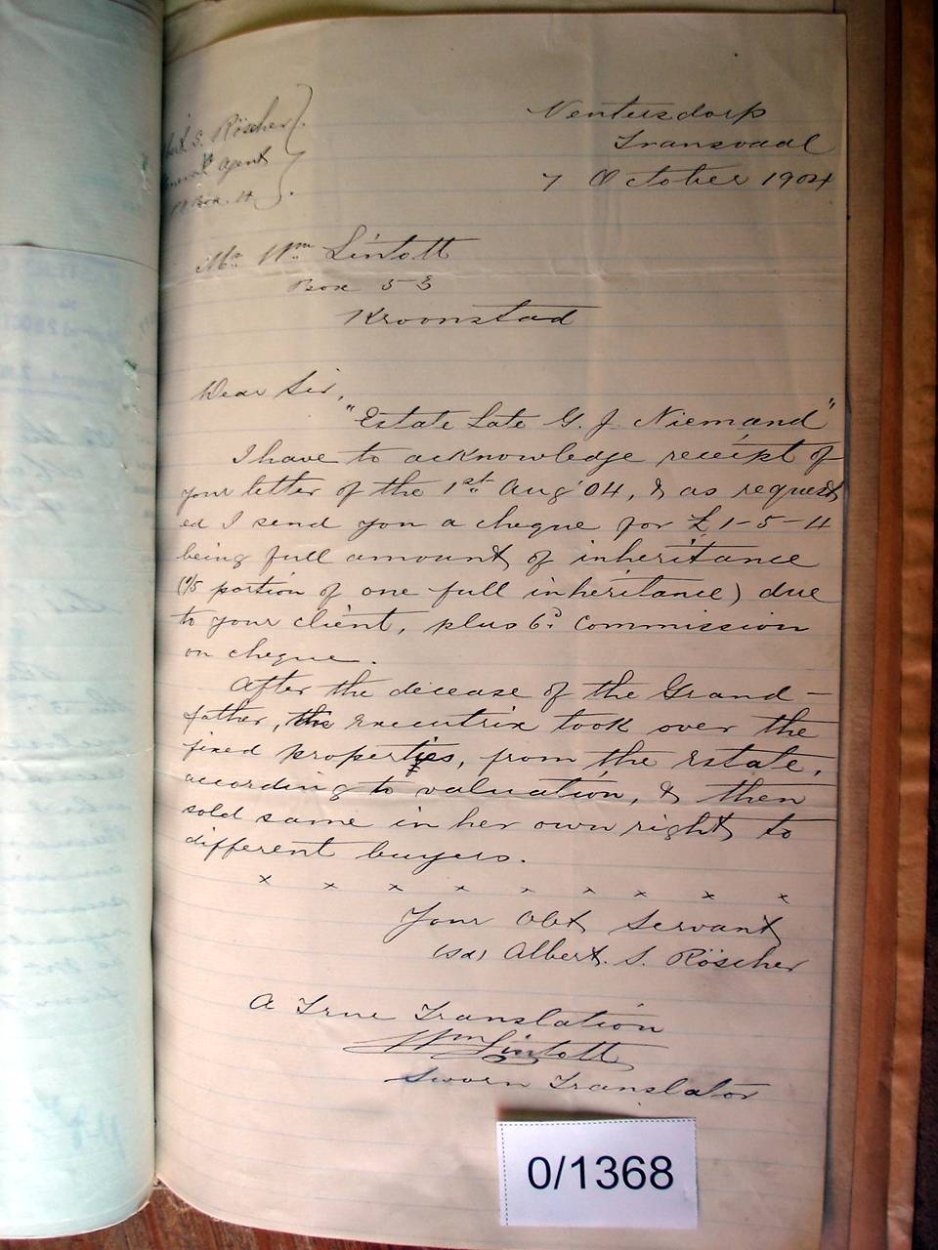 S. Röscher
Agent
Box
Ventersdorp
Transvaal
7 October 1904
Mr. Wm. Lintott
Box 53
Kroonstad
Dear Sir,
"Estate Late G. J. Niemand"
I have to acknowledge receipt of
your letter of the 1st Aug '04, & as request
ed I send you a cheque for £1-5-4
being full amount of inheritance
(1/5 portion of one full inheritance) due
to your client, plus 6d. Commission
on cheque.
After the decease of the Grand-
father, the Executrix took over the
fixed properties, from the Estate,
according to valuation, & then
sold same in her own right to
different buyers.
x x x x x x x x x
Your Obt Servant
(sd) Albert. S. Röscher
A True Translation
Wm Lintott
Sworn Translator
0/1368